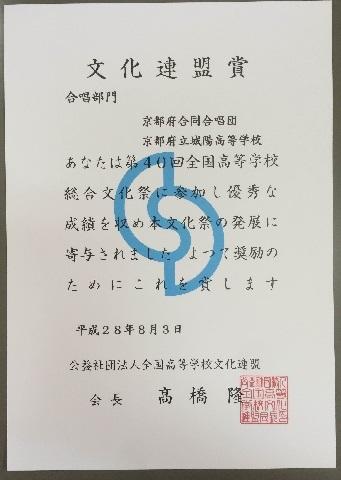 文化連盟賞
合唱部門
京都府合同合唱団
京都府立城陽高等学校
あなたは第40回全国高等学校
総合文化祭に参加し優秀な
成績を収め本文化祭の発展に
寄与されました よって奨励の
ためにこれを賞します
平成28年8月3日
公益社団法人全国高等学校文化連盟
会長 髙橋隆